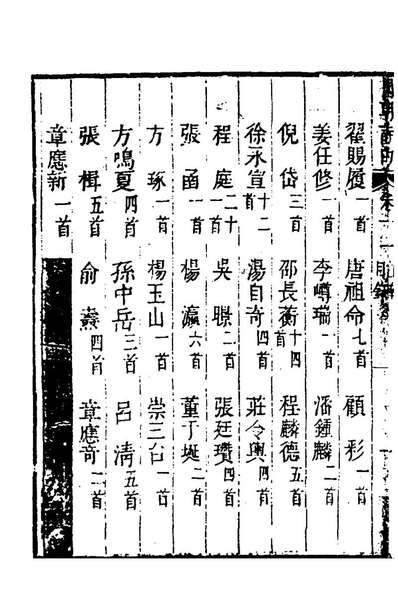 翟賜履一首 唐祖命七首 顧彩一首
姜任修一首 李嶟瑞一首 潘鍾麟二首
倪岱三首 邵長蘅十四首 程麟德五首
徐永宣十二首 湯自奇四首 莊令輿四首
程庭二十一首 吳暻二首 張廷瓚四首
張函一首 楊瀛六首 董丁埏二首
方琢一首 楊玉山一首 崇三台一首
方鳴夏四首 孫中岳三首 呂清五首
張楫五首 俞燾四首 章應奇二首
章應新一首